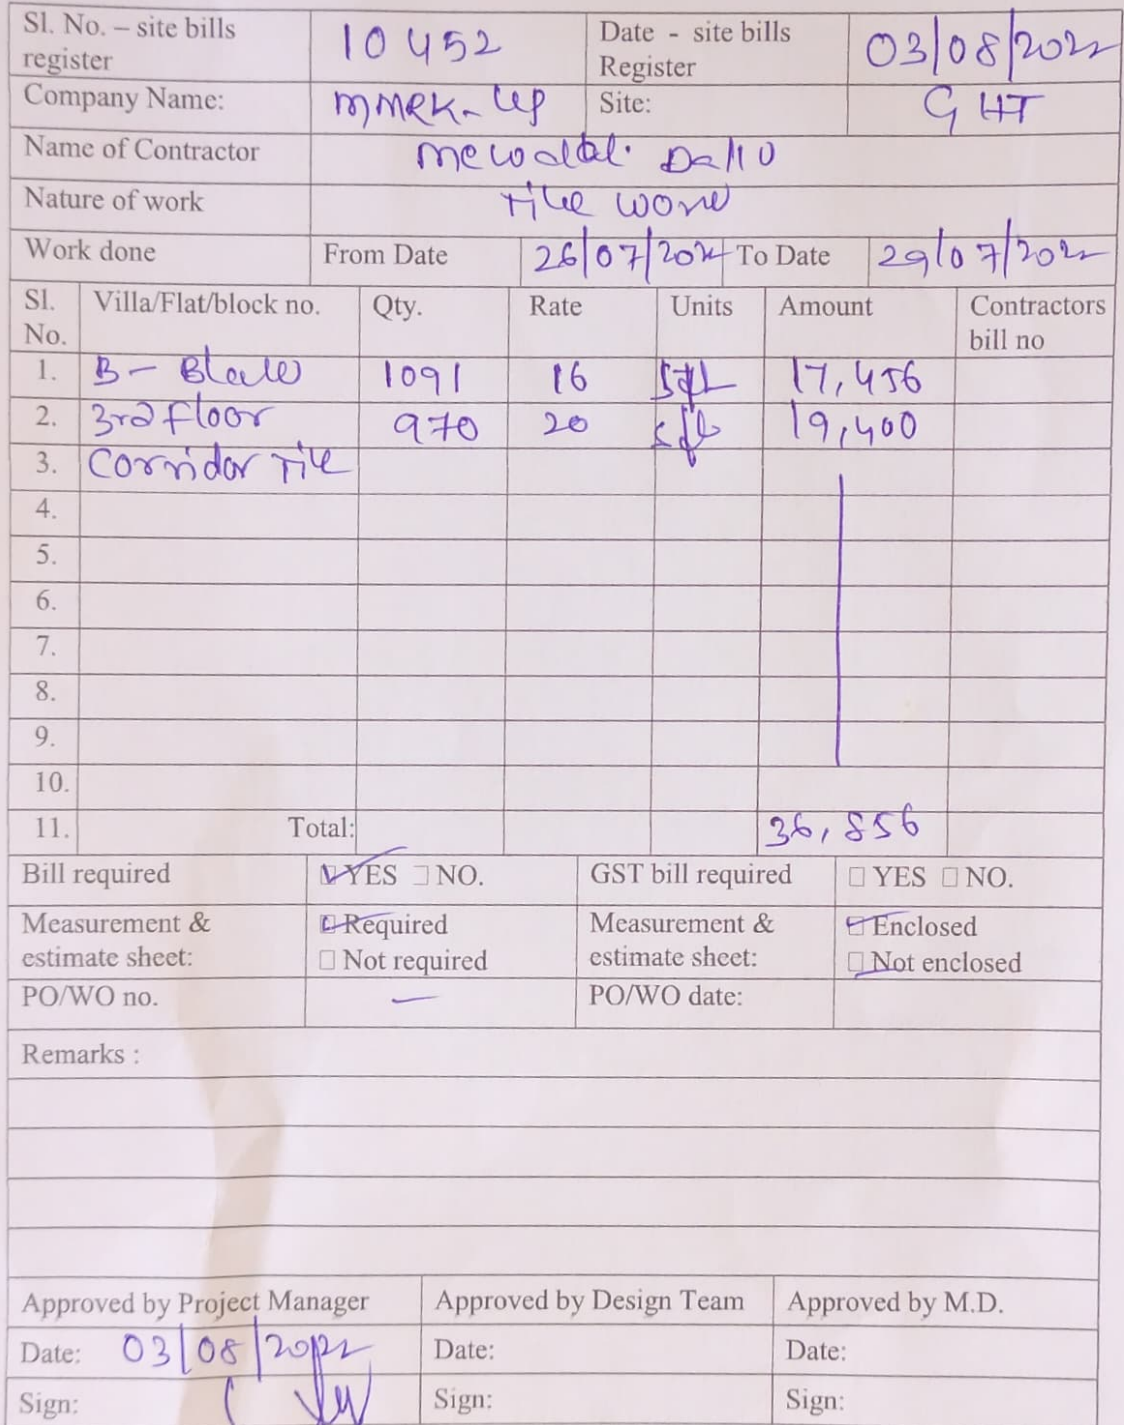 Sl. No. – site bills register 10452 Date - site bills Register 03/08/2022
Company Name: MMRK-LLP Site: GHT
Name of Contractor
Nature of work Tile work
Work done From Date 26/07/2022 To Date 29/07/2022
Sl. No. Villa/Flat/block no. Qty. Rate Units Amount Contractors bill no
1. B- Block 1091 16 sft 17,456
2. 3rd floor 970 20 sft 19,400
3. Corridor Tile
4.
5.
6.
7.
8.
9.
10.
11. Total: 36,856
Bill required YES NO. GST bill required YES NO.
Measurement & estimate sheet: Required Not required Measurement & estimate sheet: Enclosed Not enclosed
PO/WO no. — PO/WO date:
Remarks :
Approved by Project Manager Approved by Design Team Approved by M.D.
Date: 03/08/2022 Date: Date:
Sign: Sign: Sign: